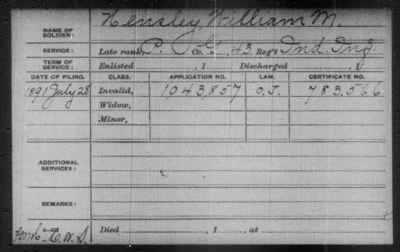 NAME OF SOLDIER: Hensley, William M.
SERVICE: Late rank, P. Co. 43 Reg't Ind. Inf
TERM OF SERVICE: Enlisted , 1 Discharged , 1
DATE OF FILING. CLASS. APPLICATION NO. LAW. CERTIFICATE NO.
1891 July 28 Invalid, 1,043,857 O.J. 783,566
Widow,
Minor,
ADDITIONAL SERVICES:
REMARKS:
Died , 1 , at